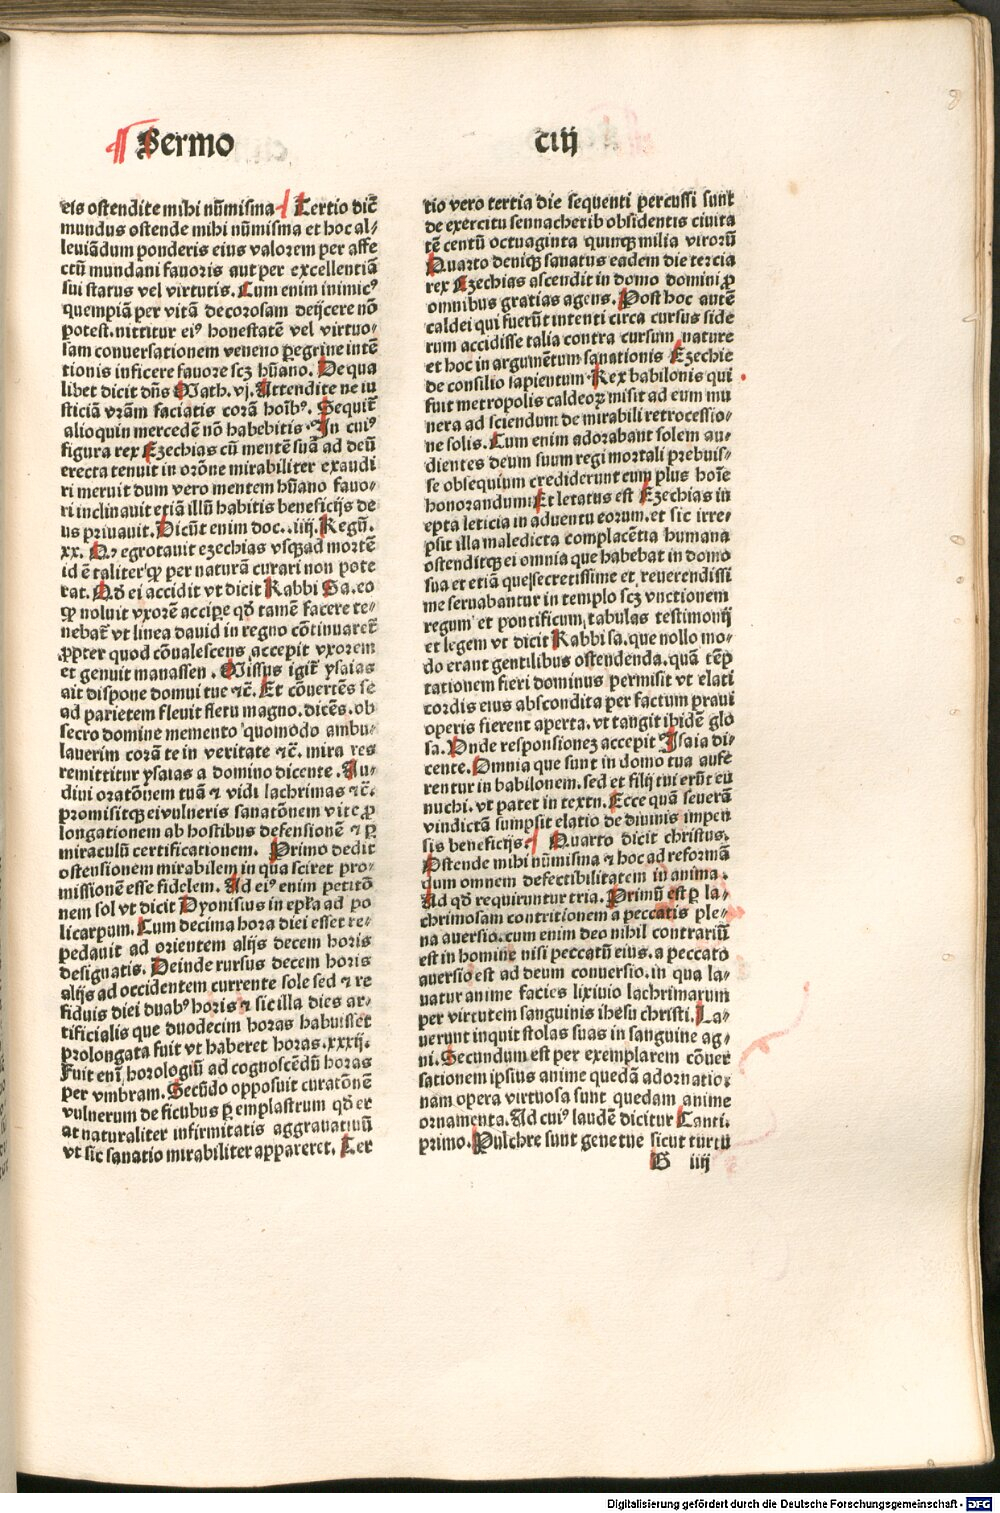 Sermo ciij
eis ostendite mihi nūmisma Tertio dic̄
mundus ostende mihi nūmisma et hoc al-
leuiādum ponderis eius valorem per affe
ctū mundani fauoris aut per excellentiā
sui status vel virtutis. Cum enim inimicꝰ
quempiā per vitā decorosam deijcere nō
potest. nittitur eiꝰ honestatē vel virtuo-
sam conuersationem veneno ꝑegrine intē
tionis inficere fauore scꝫ hūano. De qua
libet dicit dn̄s Math. vj. Attendite ne iu
sticiā vr̄am faciatis corā hoībꝰ. Sequit̄
alioquin mercedē nō habebitis. In cuiꝰ
figura rex Ezechias cū mentē suā ad deū
erecta tenuit in orōne mirabiliter exaudi
ri meruit dum vero mentem hūano fauo-
ri inclinauit etiā illū habitis beneficijs de
us priuauit. Dicūt enim doc. .iiij. Regū.
xx. Qꝫ egrotauit ezechias vsqꝫad mortē
id ē taliter ꝙ per naturā curari non pote
rat. Qd̄ ei accidit vt dicit Rabbi Sa. eo
ꝙ noluit vxorē acciꝑe qd̄ tamē facere te-
nebat̄ vt linea dauid in regno cōtinuaret̄
ꝓpter quod cōualescens accepit vxorem
et genuit manassen. Missus igit̄ ysaias
ait dispone domui tue ⁊c̄. Et cōuertēs se
ad parietem fleuit fletu magno. dicēs. ob
secro domine memento quomodo ambu-
lauerim corā te in veritate ⁊c̄. mira res
remittitur ysaias a domino dicente. Au-
diui oratōnem tuā ⁊ vidi lachrimas ⁊c̄.
promisitqꝫ ei vulneris sanatōnem vite ꝓ
longationem ab hostibus defensionē ⁊ ꝑ
miraculū certificationem. Primo dedit
ostensionem mirabilem in qua sciret pro-
missionē esse fidelem. Ad eiꝰ enim petitō
nem sol vt dicit Dyonisius in epl̄a ad po
licarpum. Cum decima hora diei esset re-
pedauit ad orientem alijs decem horis
designatis. Deinde rursus decem horis
alijs ad occidentem currente sole sed ⁊ re
siduis diei duabꝰ horis ⁊ sic illa dies ar-
tificialis que duodecim horas habuisset
prolongata fuit vt haberet horas. xxxij.
Fuit enī horologiū ad cognoscēdū horas
per vmbram. Secūdo opposuit curatōnē
vulnerum de ficubus ꝑ emplastrum qd̄ er
at naturaliter infirmitatis aggrauatiuū
vt sic sanatio mirabiliter appareret. Ter
tio vero tertia die sequenti percussi sunt
de exercitu sennacherib obsidentis ciuita
tē centū octuaginta quinqꝫ milia virorū
Quarto deniqꝫ sanatus eadem die tercia
rex Ezechias ascendit in domo domini ꝓ
omnibus gratias agens. Post hoc autē
caldei qui fuerūt intenti circa cursus side
rum accidisse talia contra cursum nature
et hoc in argumētum sanationis Ezechie
de consilio sapientum Rex babilonis qui
fuit metropolis caldeoꝝ misit ad eum mu
nera ad sciendum de mirabili retrocessio-
ne solis. Cum enim adorabant solem au-
dientes deum suum regi mortali prebuis-
se obsequium crediderunt eum plus hoīe
honorandum. Et letatus est Ezechias in
epta leticia in aduentu eorum. et sic irre-
psit illa maledicta complacētia humana
ostenditqꝫ ei omnia que habebat in domo
sua et etiā que secretissime et reuerendissi
me seruabantur in templo scꝫ vnctionem
regum et pontificum, tabulas testimonij
et legem vt dicit Rabbi sa. que nollo mo-
do erant gentilibus ostendenda. quā tēp
tationem fieri dominus permisit vt elati
cordis eius abscondita per factum praui
operis fierent aperta. vt tangit ibidē glo
sa. Vnde responsioneꝫ accepit Isaia di-
cente. Omnia que sunt in domo tua aufe
rentur in babilonem. sed et filij tui erūt eu
nuchi. vt patet in textu. Ecce quā seuerā
vindictā sumpsit elatio de diuinis impen
sis beneficijs. Quarto dicit christus.
Ostende mihi nūmisma ⁊ hoc ad reformā
dum omnem defectibilitatem in anima.
Ad qd̄ requiruntur tria. Primū est ꝑ la-
chrimosam contritionem a peccatis ple-
na auersio. cum enim deo nihil contrariū
est in homine nisi peccatū eius. a peccato
auersio est ad deum conuersio. in qua la-
uatur anime facies lixiuio lachrimarum
per virtutem sanguinis ihesu christi. La-
uerunt inquit stolas suas in sanguine ag-
ni. Secundum est per exemplarem cōuer
sationem ipsius anime quedā adornatio.
nam opera virtuosa sunt quedam anime
ornamenta. Ad cuiꝰ laudē dicitur Canti.
primo. Pulchre sunt gene tue sicut turtu
G iiij
Digitalisierung gefördert durch die Deutsche Forschungsgemeinschaft - DFG